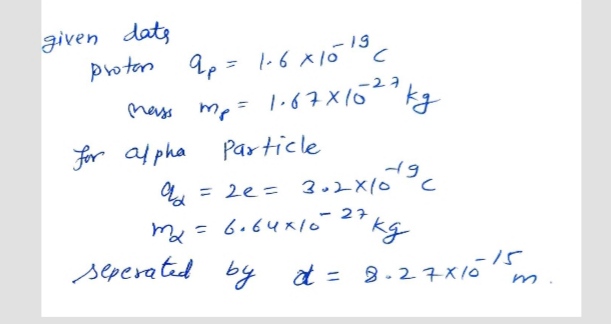 given data
proton q_p = 1.6 × 10^-19 C
mass m_p = 1.67 × 10^-27 kg
for alpha Particle
q_α = 2e = 3.2 × 10^-19 C
m_α = 6.64 × 10^-27 kg
seperated by d = 8.27 × 10^-15 m.